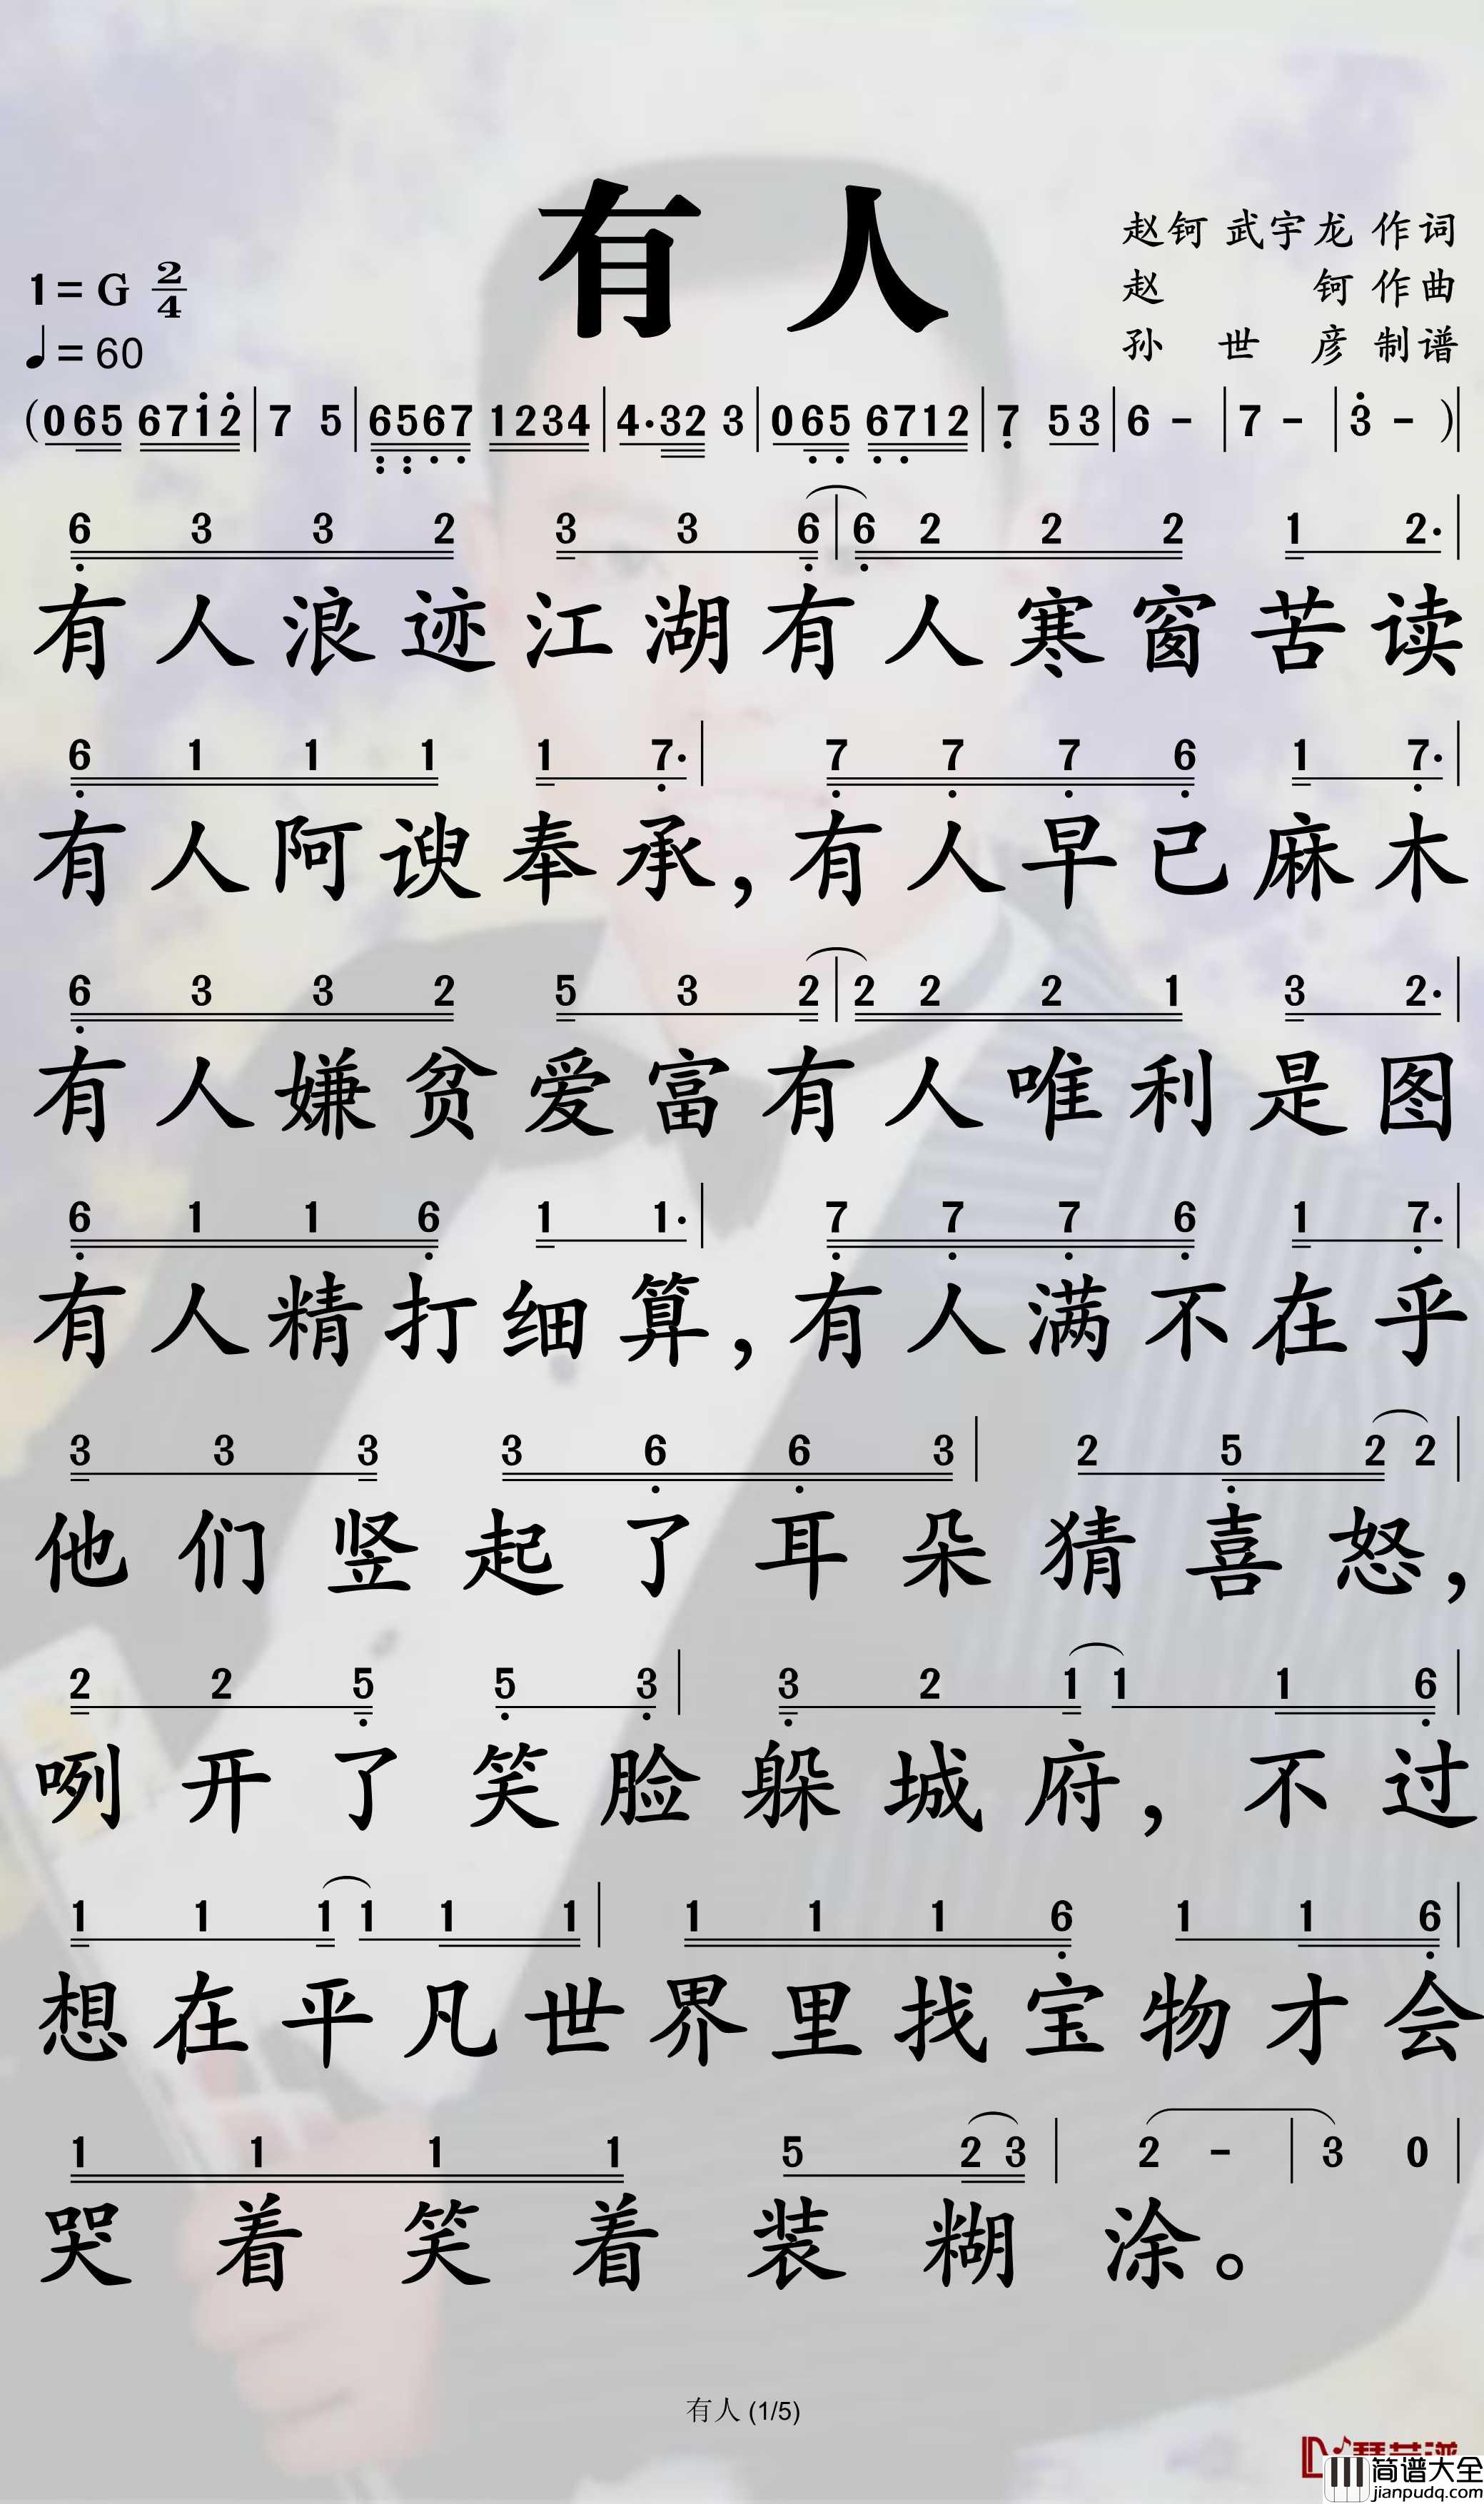 有人
赵钶 武宇龙 作词
1=G 2/4
赵 钶 作曲
♩=60
孙世彦 制谱
(065 6712 | 7 5 | 6567 1234 | 4·32 3 | 065 6712 | 7 53 | 6 - | 7 - | 3 - )|
6 3 3 2 3 3 6 | 6 2 2 2 1 2· |
有人浪迹江湖有人寒窗苦读
6 1 1 1 1 7· | 7 7 7 6 1 7· |
有人阿谀奉承,有人早已麻木
6 3 3 2 5 3 2 | 2 2 2 1 3 2· |
有人嫌贫爱富有人唯利是图
6 1 1 6 1 1· | 7 7 7 6 1 7· |
有人精打细算,有人满不在乎
3 3 3 3 6 6 3 | 2 5 2 2 |
他们竖起了耳朵猜喜怒,
2 2 5 5 3 | 3 2 1 1 1 6 |
咧开了笑脸躲城府,不过
1 1 1 1 1 1 | 1 1 1 6 1 1 6 |
想在平凡世界里找宝物才会
1 1 1 1 5 2 3 | 2 - | 3 0 |
哭着笑着装糊涂。
有人 (1/5)
简谱大全
jianpudq.com